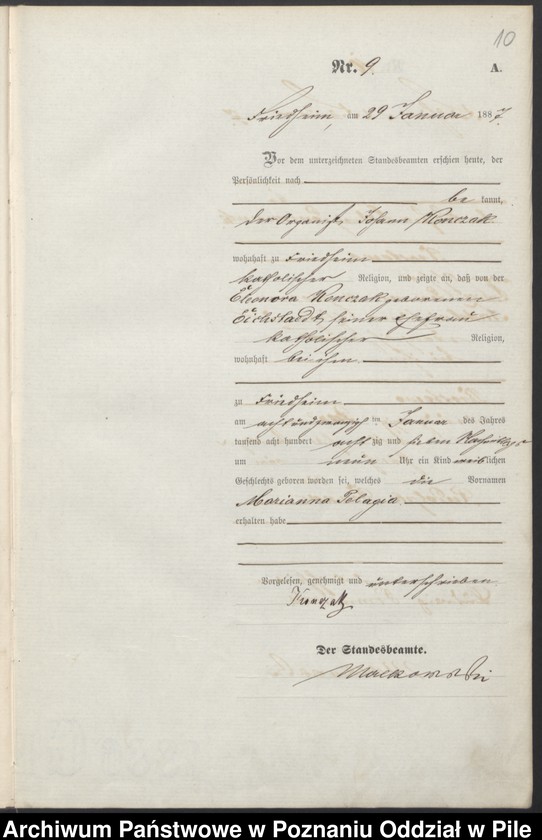 10
Nr. 9. A.
Friedheim, am 29 Januar 1887.
Vor dem unterzeichneten Standesbeamten erschien heute, der
Persönlichkeit nach
be kannt,
der Organist Johann Konczak
wohnhaft zu Friedheim
katholischer Religion, und zeigte an, daß von der
Eleonora Konczak geborenen
Eichstaedt, seiner Ehefrau
katholischer Religion,
wohnhaft bei ihm
zu Friedheim
am acht und zwanzigsten Januar des Jahres
tausend acht hundert acht zig und sieben Nachmittags
um neun Uhr ein Kind weiblichen
Geschlechts geboren worden sei, welches die Vornamen
Marianna Pelagia
erhalten habe
Vorgelesen, genehmigt und unterschrieben
Konczak
Der Standesbeamte.
Mackowski
Archiwum Państwowe w Poznaniu Oddział w Pile